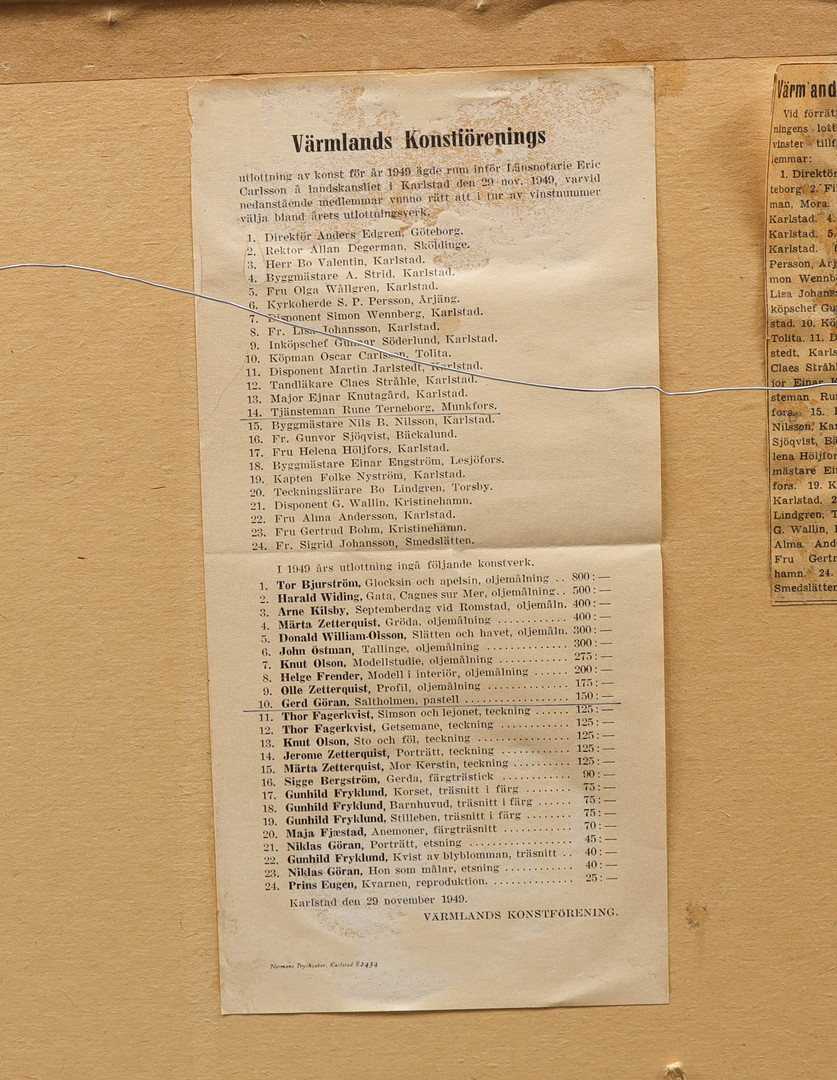 Värmlands Konstförenings
utlottning av konst för år 1949 ägde rum inför Länsnotarie Eric
Carlsson å landskansliet i Karlstad den 29 nov. 1949, varvid
nedanstående medlemmar vunno rätt att i tur av vinstnummer
välja bland årets utlottningsverk.
1. Direktör Anders Edgren, Göteborg.
2. Rektor Allan Degerman, Sköldinge.
3. Herr Bo Valentin, Karlstad.
4. Byggmästare A. Strid, Karlstad.
5. Fru Olga Wållgren, Karlstad.
6. Kyrkoherde S. P. Persson, Årjäng.
7. Disponent Simon Wennberg, Karlstad.
8. Fr. Lisa Johansson, Karlstad.
9. Inköpschef Gunnar Söderlund, Karlstad.
10. Köpman Oscar Carlsson, Tolita.
11. Disponent Martin Jarlstedt, Karlstad.
12. Tandläkare Claes Stråhle, Karlstad.
13. Major Ejnar Knutagård, Karlstad.
14. Tjänsteman Rune Terneborg, Munkfors.
15. Byggmästare Nils B. Nilsson, Karlstad.
16. Fr. Gunvor Sjöqvist, Bäckalund.
17. Fru Helena Höljfors, Karlstad.
18. Byggmästare Einar Engström, Lesjöfors.
19. Kapten Folke Nyström, Karlstad.
20. Teckningslärare Bo Lindgren, Torsby.
21. Disponent G. Wallin, Kristinehamn.
22. Fru Alma Andersson, Karlstad.
23. Fru Gertrud Bohm, Kristinehamn.
24. Fr. Sigrid Johansson, Smedslätten.
I 1949 års utlottning ingå följande konstverk.
1. Tor Bjurström, Glocksin och apelsin, oljemålning .. 800:—
2. Harald Widing, Gata, Cagnes sur Mer, oljemålning.. 500:—
3. Arne Kilsby, Septemberdag vid Romstad, oljemåln. 400:—
4. Märta Zetterquist, Gröda, oljemålning ............ 400:—
5. Donald William-Olsson, Slätten och havet, oljemåln. 300:—
6. John Östman, Tallinge, oljemålning .............. 300:—
7. Knut Olson, Modellstudie, oljemålning ............ 275:—
8. Helge Frender, Modell i interiör, oljemålning ...... 200:—
9. Olle Zetterquist, Profil, oljemålning .............. 175:—
10. Gerd Göran, Saltholmen, pastell .................. 150:—
11. Thor Fagerkvist, Simson och lejonet, teckning ...... 125:—
12. Thor Fagerkvist, Getsemane, teckning ............ 125:—
13. Knut Olson, Sto och föl, teckning ................ 125:—
14. Jerome Zetterquist, Porträtt, teckning ............ 125:—
15. Märta Zetterquist, Mor Kerstin, teckning .......... 125:—
16. Sigge Bergström, Gerda, färgträstick ............ 90:—
17. Gunhild Fryklund, Korset, träsnitt i färg ........ 75:—
18. Gunhild Fryklund, Barnhuvud, träsnitt i färg ...... 75:—
19. Gunhild Fryklund, Stilleben, träsnitt i färg ........ 75:—
20. Maja Fjæstad, Anemoner, färgträsnitt ............ 70:—
21. Niklas Göran, Porträtt, etsning .................. 45:—
22. Gunhild Fryklund, Kvist av blyblomman, träsnitt .. 40:—
23. Niklas Göran, Hon som målar, etsning ............ 40:—
24. Prins Eugen, Kvarnen, reproduktion. .............. 25:—
Karlstad den 29 november 1949.
VÄRMLANDS KONSTFÖRENING.
Nermans Trycksaker, Karlstad 82434
Värmland
Vid förrät
ningens lott
vinster tillf
lemmar:
1. Direktör
teborg. 2. Fi
man, Mora.
Karlstad. 4.
Karlstad. 5.
Karlstad.
Persson, Årj
mon Wennb
Lisa Johans
köpschef Gu
stad. 10. Kö
Tolita. 11. D
stedt, Karls
Claes Stråhl
jor Einar K
steman Ru
fors. 15.
Nilsson, Ka
Sjöqvist, Bä
lena Höljfor
mästare Ei
fors. 19. K
Karlstad. 2
Lindgren, T
G. Wallin,
Alma And
Fru Gertr
hamn. 24.
Smedslätten